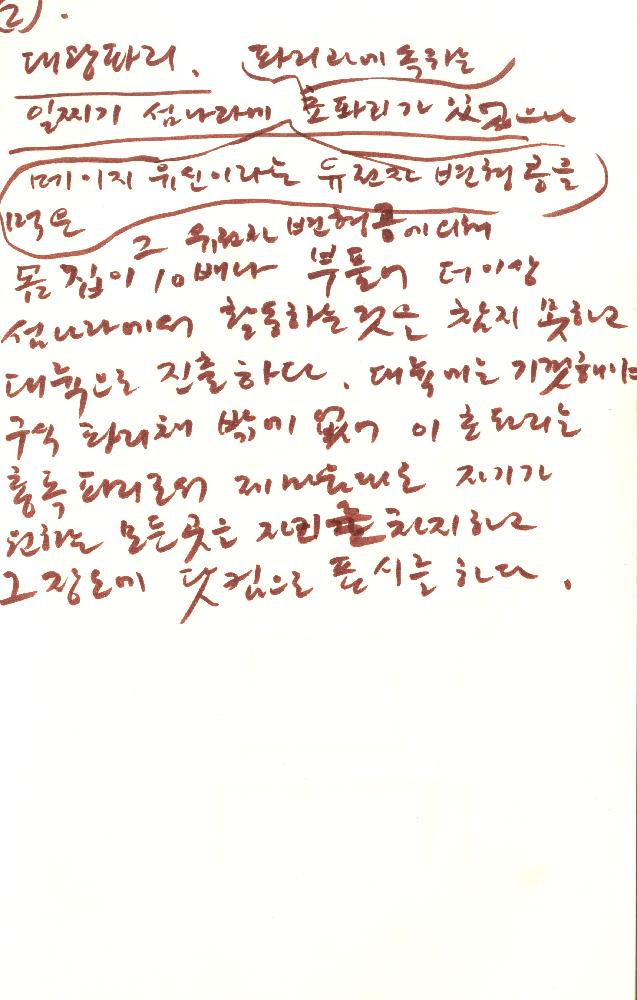 (2).
대왕파리. 파리과에 속하는
일찌기 섬나라에 초파리가 있었으나
메이지 유신이라는 유전자 변형 콩을
먹은
그 유전자 변형콩에 의해
몸집이 10배나 부풀어 더이상
섬나라에서 활동하는것은 참지 못하고
대륙으로 진출하다. 대륙에는 기껏해야
구식 파리채 밖에 없어 이 초파리는
흉폭 파리로서 제마음대로 자기가
원하는 모든곳은 자리를 차지하고
그 장소에 닷컴으로 표시를 하다.